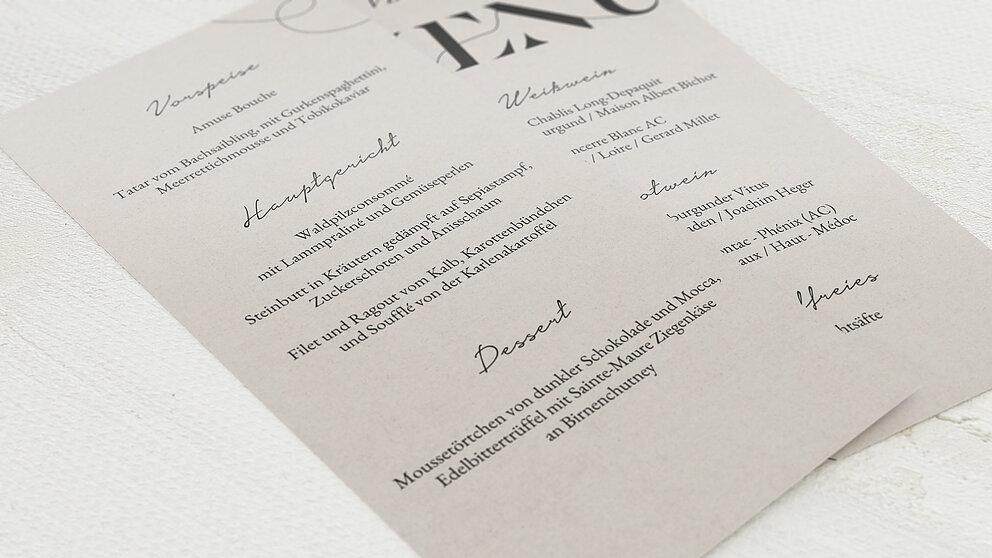 Vorspeise
Amuse Bouche
Tatar vom Bachsaibling, mit Gurkenspaghettini,
Meerrettichmousse und Tobikokaviar
Hauptgericht
Waldpilzconsommé
mit Lammpraliné und Gemüseperlen
Steinbutt in Kräutern gedämpft auf Sepiastampf,
Zuckerschoten und Anisschaum
Filet und Ragout vom Kalb, Karottenbündchen
und Soufflé von der Karlenakartoffel
Dessert
Moussetörtchen von dunkler Schokolade und Mocca,
Edelbittertrüffel mit Sainte-Maure Ziegenkäse
an Birnenchutney
Weißwein
Chablis Long-Depaquit
urgund / Maison Albert Bichot
ncerre Blanc AC
/ Loire / Gerard Millet
otwein
burgunder Vitus
den / Joachim Heger
ntac - Phénix (AC)
aux / Haut - Médoc
lfreies
htsäfte